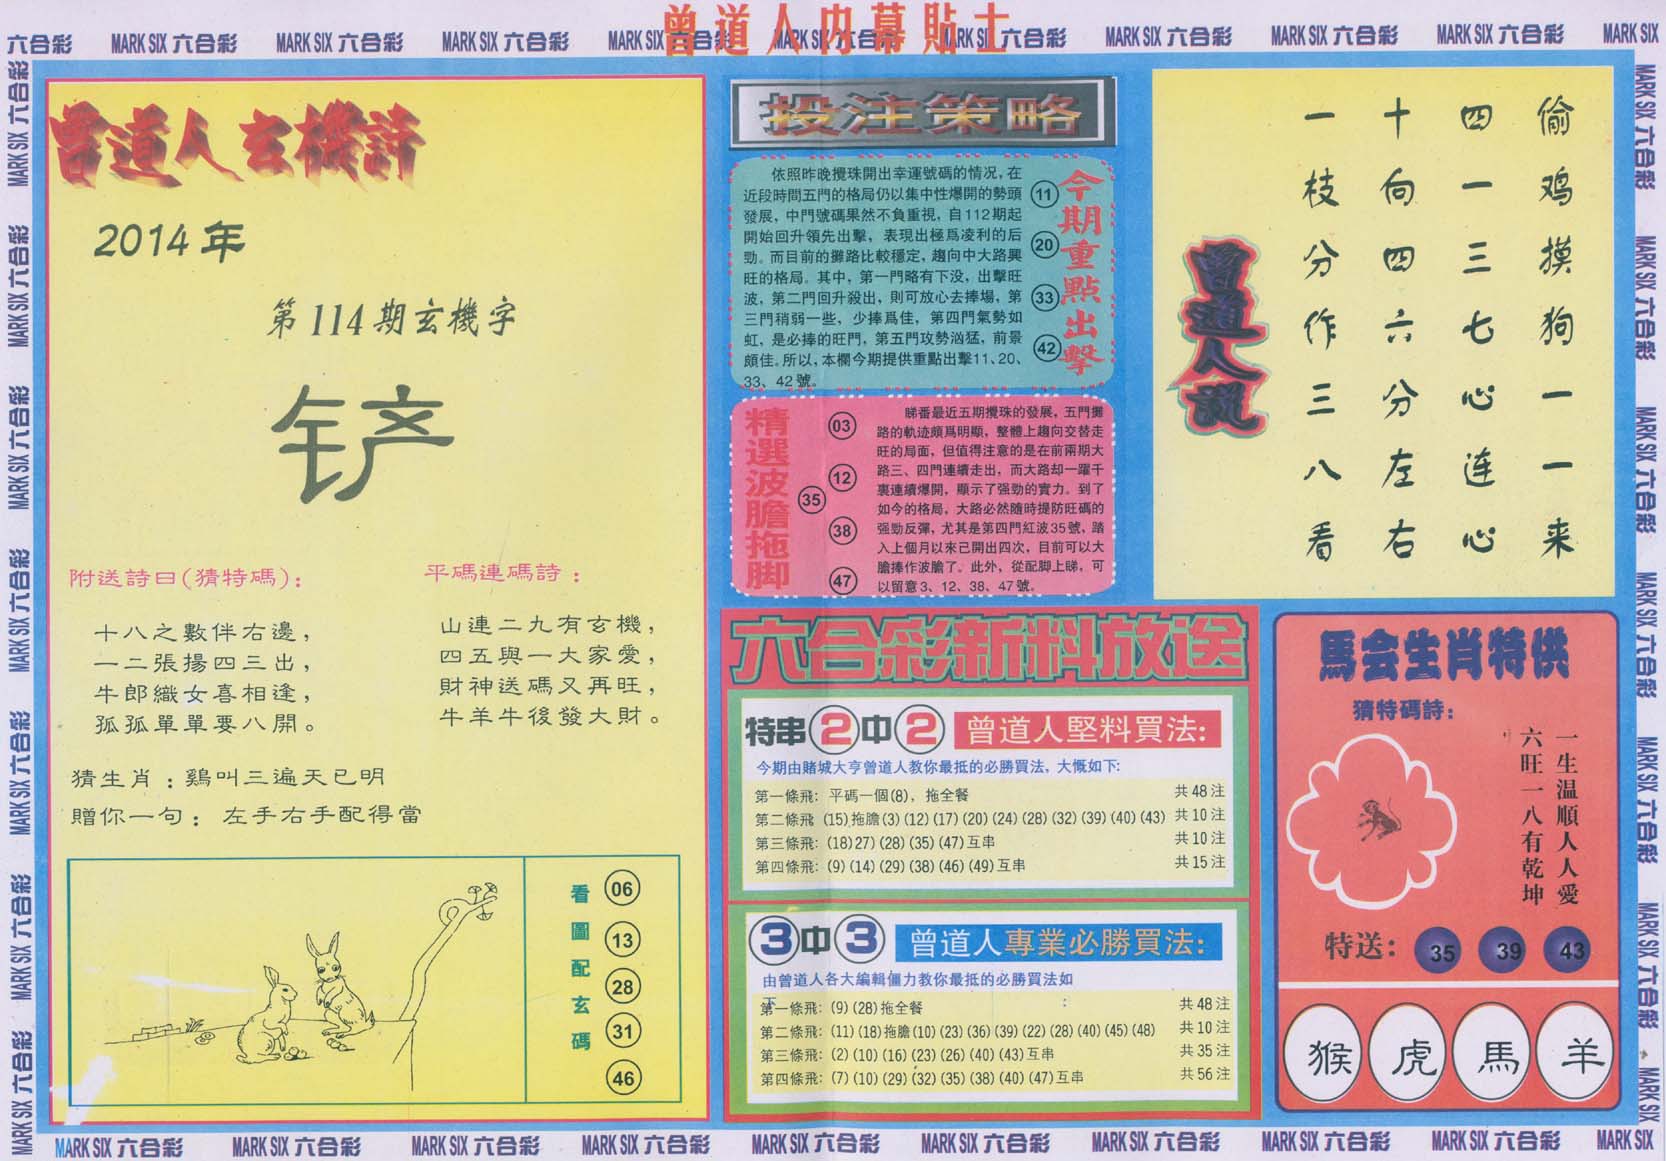 曾道人内幕貼士
六合彩 MARK SIX 六合彩 MARK SIX 六合彩 MARK SIX 六合彩 MARK SIX 六合彩 MARK SIX 六合彩 MARK SIX 六合彩 MARK SIX 六合彩 MARK SIX 六合彩 MARK SIX 六合彩 MARK SIX
曾道人玄機詩
2014年
第114期玄機字
铲
附送詩曰(猜特碼)：
十八之數伴右邊，
一二張揚四三出，
牛郎織女喜相逢，
孤孤單單要八開。
平碼連碼詩：
山連二九有玄機，
四五與一大家愛，
財神送碼又再旺，
牛羊牛後發大財。
猜生肖：鷄叫三遍天已明
贈你一句：左手右手配得當
看圖配玄碼
06
13
28
31
46
投注策略
依照昨晚攪珠開出幸運號碼的情况，在
近段時間五門的格局仍以集中性爆開的勢頭
發展，中門號碼果然不負重視，自112期起
開始回升領先出擊，表現出極爲凌利的后
勁。而目前的攤路比較穩定，趨向中大路興
旺的格局。其中，第一門略有下没，出擊旺
波，第二門回升殺出，則可放心去捧場，第
三門稍弱一些，少捧爲佳，第四門氣勢如
虹，是必捧的旺門，第五門攻勢汹猛，前景
頗佳。所以，本欄今期提供重點出擊11、20、
33、42號。
今期重點出擊
11
20
33
42
精選波膽拖脚
03
12
35
38
47
睇番最近五期攪珠的發展，五門攤
路的軌迹頗爲明顯，整體上趨向交替走
旺的局面，但值得注意的是在前兩期大
路三、四門連續走出，而大路却一躍千
裏連續爆開，顯示了强勁的實力。到了
如今的格局，大路必然隨時提防旺碼的
强勁反彈，尤其是第四門紅波35號，踏
入上個月以來已開出四次，目前可以大
膽捧作波膽了。此外，從配脚上睇，可
以留意3、12、38、47號。
六合彩新料放送
特串2中2 曾道人堅料買法：
今期由賭城大亨曾道人教你最抵的必勝買法，大慨如下：
第一條飛：平碼一個(8)，拖全餐 共48注
第二條飛 (15)拖膽(3)(12)(17)(20)(24)(28)(32)(39)(40)(43) 共10注
第三條飛：(18)27)(28)(35)(47)互串 共10注
第四條飛：(9)(14)(29)(38)(46)(49)互串 共15注
3中3 曾道人專業必勝買法：
由曾道人各大編輯僵力教你最抵的必勝買法如
下 ：
第一條飛：(9)(28)拖全餐 共48注
第二條飛：(11)(18)拖膽(10)(23)(36)(39)(22)(28)(40)(45)(48) 共10注
第三條飛：(2)(10)(16)(23)(26)(40)(43)互串 共35注
第四條飛：(7)(10)(29)(32)(35)(38)(40)(47)互串 共56注
曾道人說
偷鸡摸狗一一来
四一三七心连心
十向四六分左右
一枝分作三八看
馬会生肖特供
猜特碼詩：
一生温順人人愛
六旺一八有乾坤
特送： 35 39 43
猴 虎 馬 羊
MARK SIX 六合彩 MARK SIX 六合彩 MARK SIX 六合彩 MARK SIX 六合彩 MARK SIX 六合彩 MARK SIX 六合彩 MARK SIX 六合彩 MARK SIX 六合彩 MARK SIX 六合彩 MARK SIX